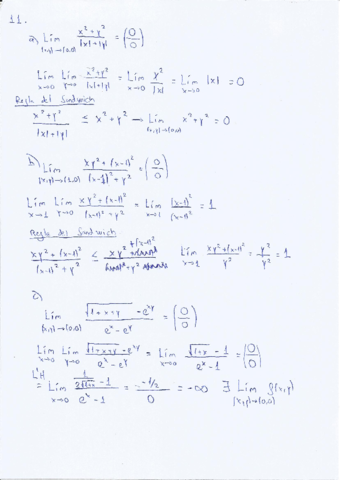 11.
a) Lim (x,y)→(0,0) x²+y² / |x|+|y| = (0/0)
Lim x→0 Lim y→0 x²+y² / |x|+|y| = Lim x→0 y² / |x| = Lim x→0 |x| = 0
Regla del Sandwich
x²+y² / |x|+|y| ≤ x²+y² → Lim (x,y)→(0,0) x²+y² = 0
b) Lim (x,y)→(1,0) xy²+(x-1)² / (x-1)²+y² = (0/0)
Lim x→1 Lim y→0 xy²+(x-1)² / (x-1)²+y² = Lim x→1 (x-1)² / (x-1)² = 1
Regla del Sandwich
xy²+(x-1)² / (x-1)²+y² ≤ xy²+(x-1)² Lim x→1 xy²+(x-1)² / y² = y² / y² = 1
c)
Lim (x,y)→(0,0) √1+x+y - e^xy / e^x - e^y = (0/0)
Lim x→0 Lim y→0 √1+x+y - e^xy / e^x - e^y = Lim x→0 √1+x - 1 / e^x - 1 = (0/0)
L'H = Lim x→0 -1 / e^x - 1 = -1/2 / 0 = -∞ ∄ Lim (x,y)→(0,0) f(x,y)